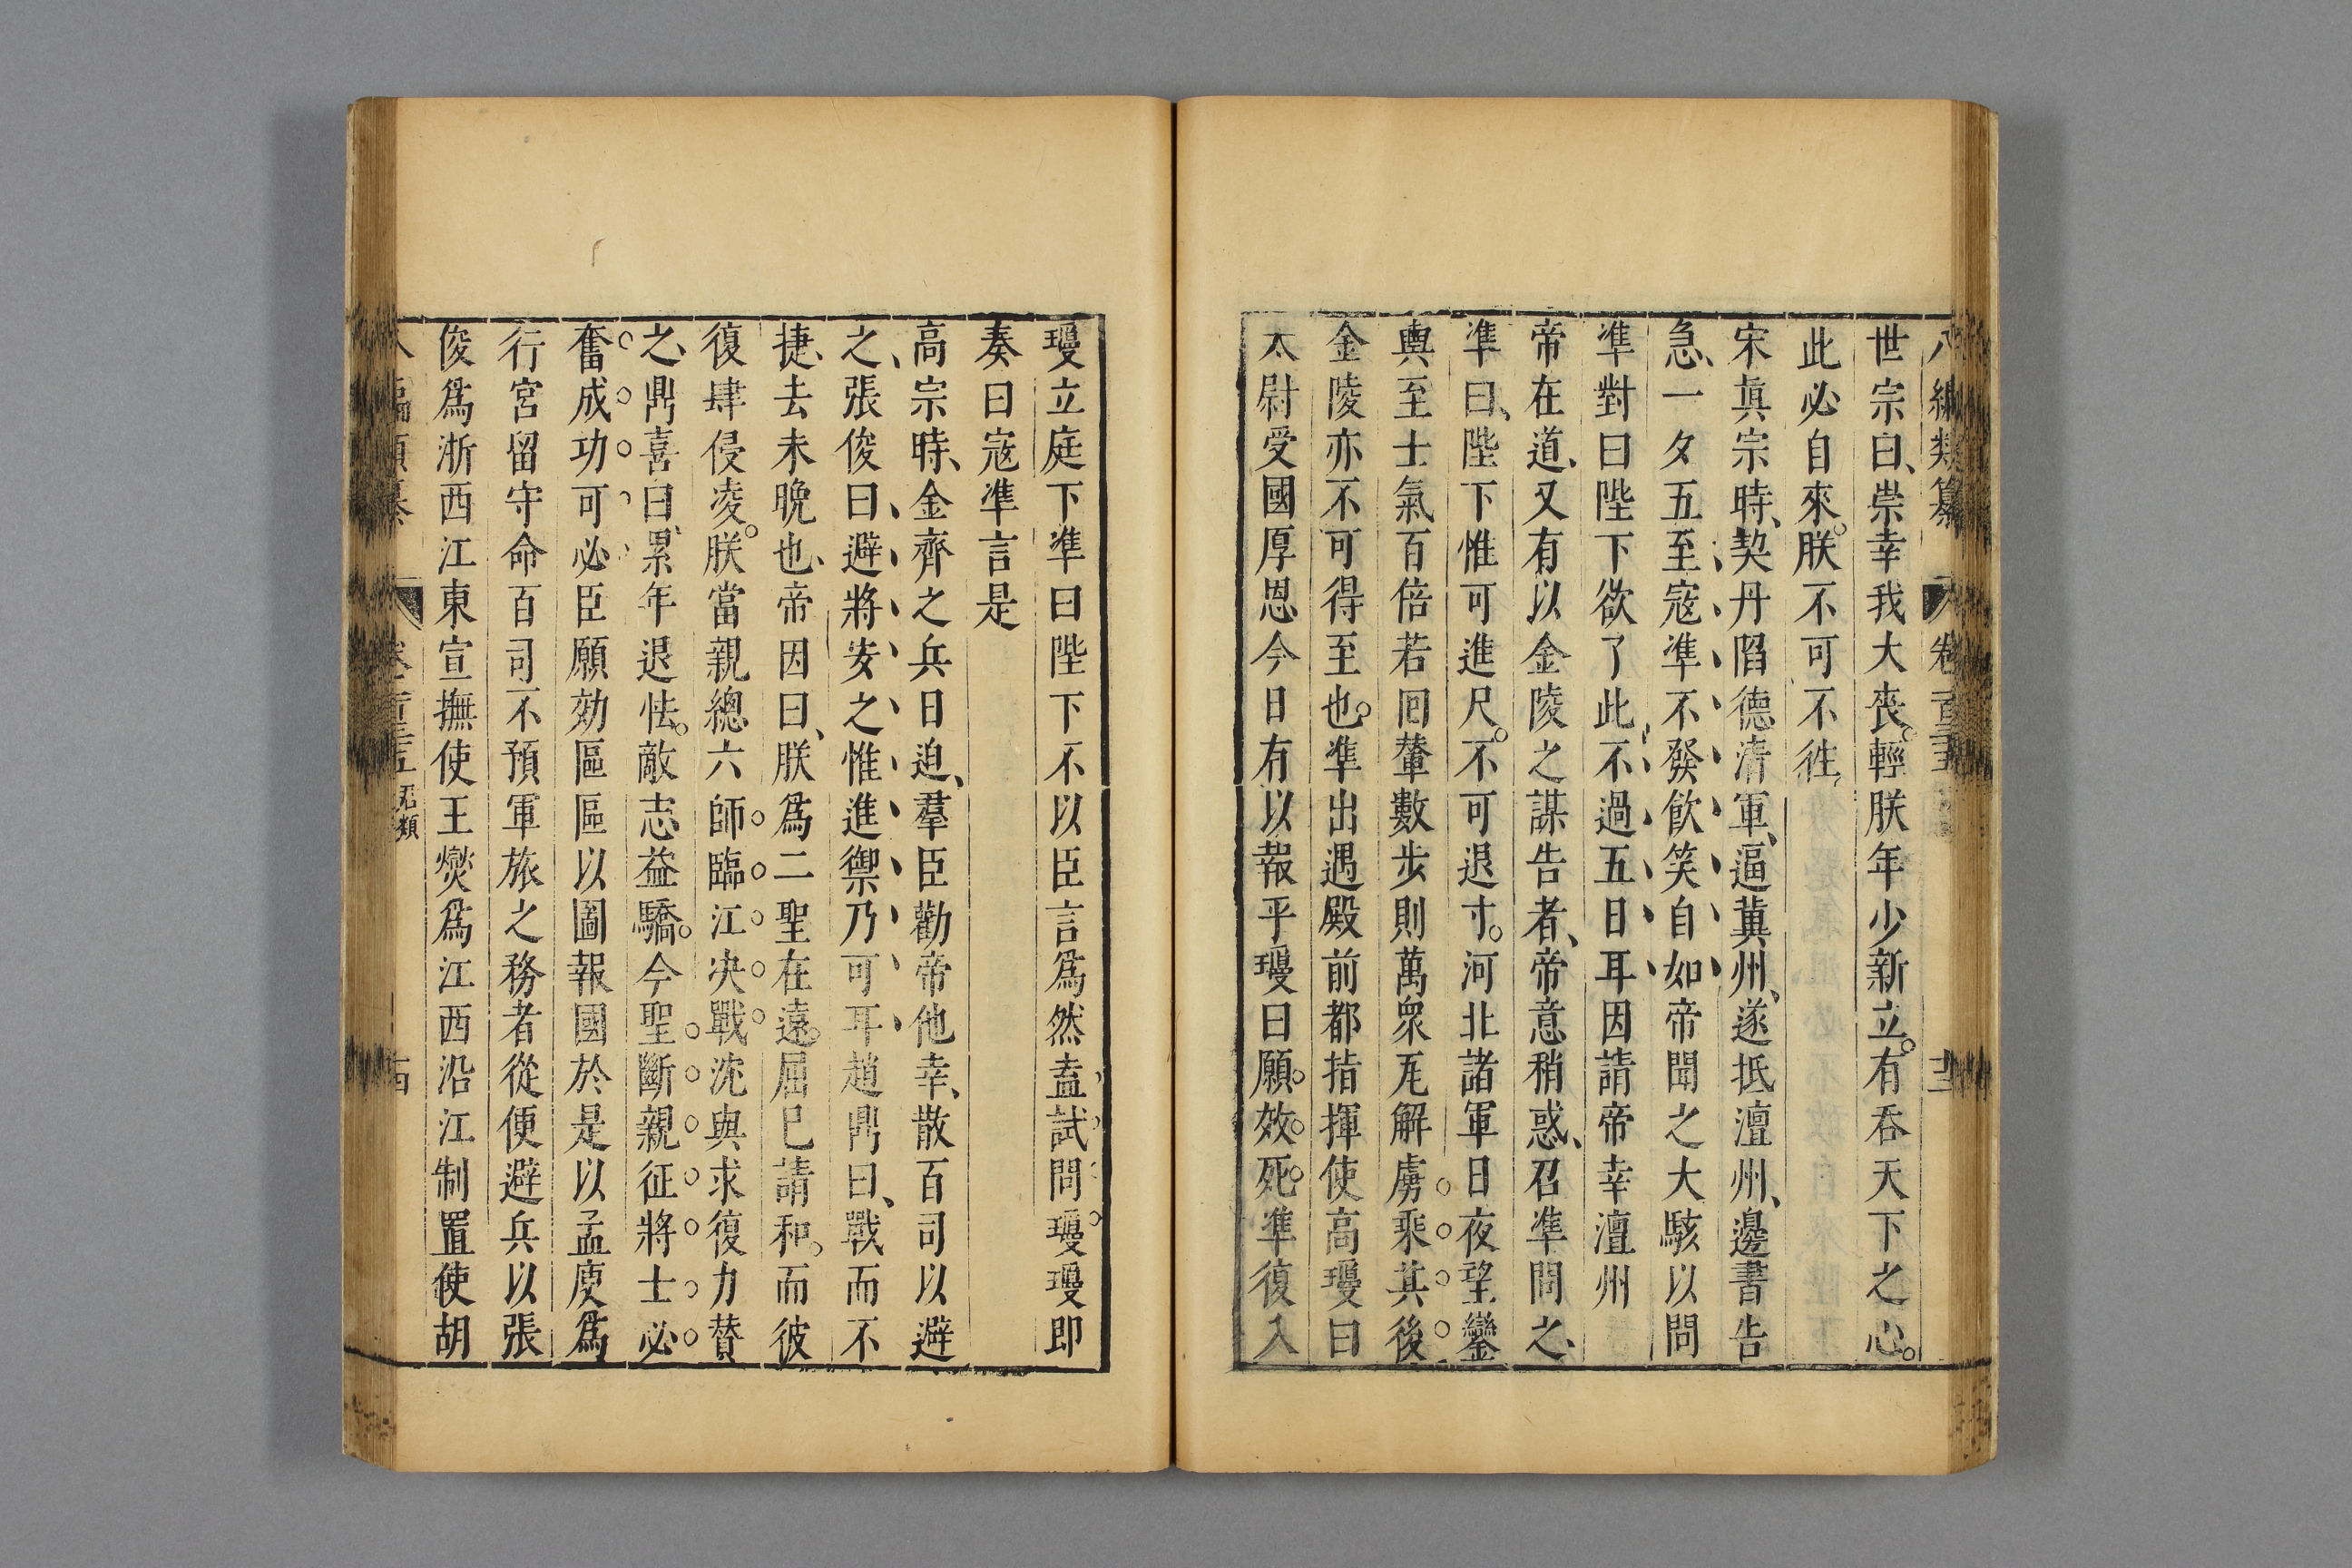 八編類纂 卷百三五 十三
世宗曰崇幸我大喪輕朕年少新立有吞天下之心
此必自來朕不可不徃
宋眞宗時契丹陷德清軍逼冀州遂抵澶州邊書告
急一夕五至寇凖不發飲笑自如帝聞之大駭以問
凖對曰陛下欲了此不過五日耳因請帝幸澶州
帝在道又有以金陵之謀告者帝意稍惑召凖問之
凖曰陛下惟可進尺不可退寸河北諸軍日夜望鑾
輿至士氣百倍若囘輦數步則萬衆瓦解虜乘其後
金陵亦不可得至也凖出遇殿前都指揮使高瓊曰
太尉受國厚恩今日有以報乎瓊曰願效死凖復入
瓊立庭下凖曰陛下不以臣言爲然盍試問瓊瓊即
奏曰寇凖言是
高宗時金齊之兵日迫羣臣勸帝他幸散百司以避
之張俊曰避將安之惟進禦乃可耳趙鼎曰戰而不
捷去未晩也帝因曰朕爲二聖在遠屈已請和而彼
復肆侵凌朕當親總六師臨江决戰沈與求復力贊
之鼎喜曰累年退怯敵志益驕今聖斷親征將士必
奮成功可必臣願効區區以圖報國於是以孟庾爲
行宮留守命百司不預軍旅之務者從便避兵以張
俊爲浙西江東宣撫使王㷫爲江西沿江制置使胡
八編類纂 卷百三五 君類 十四